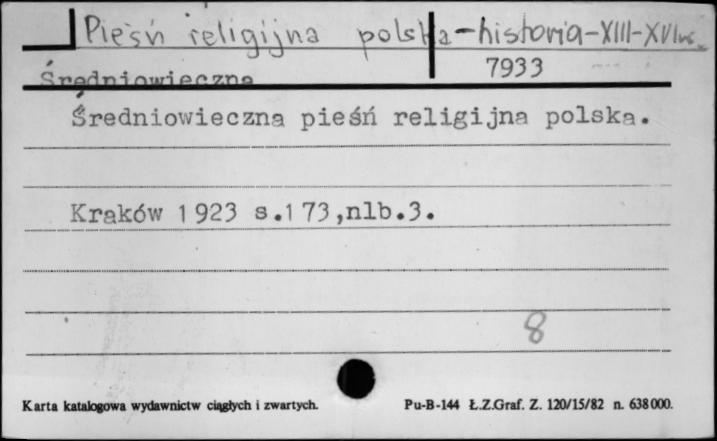 Pieśń religijna polska-historia-XIII-XVI w.
Średniowieczna
7933
Średniowieczna pieśń religijna polska.
Kraków 1923 s.173,nlb.3.
8
Karta katalogowa wydawnictw ciągłych i zwartych.
Pu-B-144 Ł.Z.Graf. Z. 120/15/82 n. 638000.